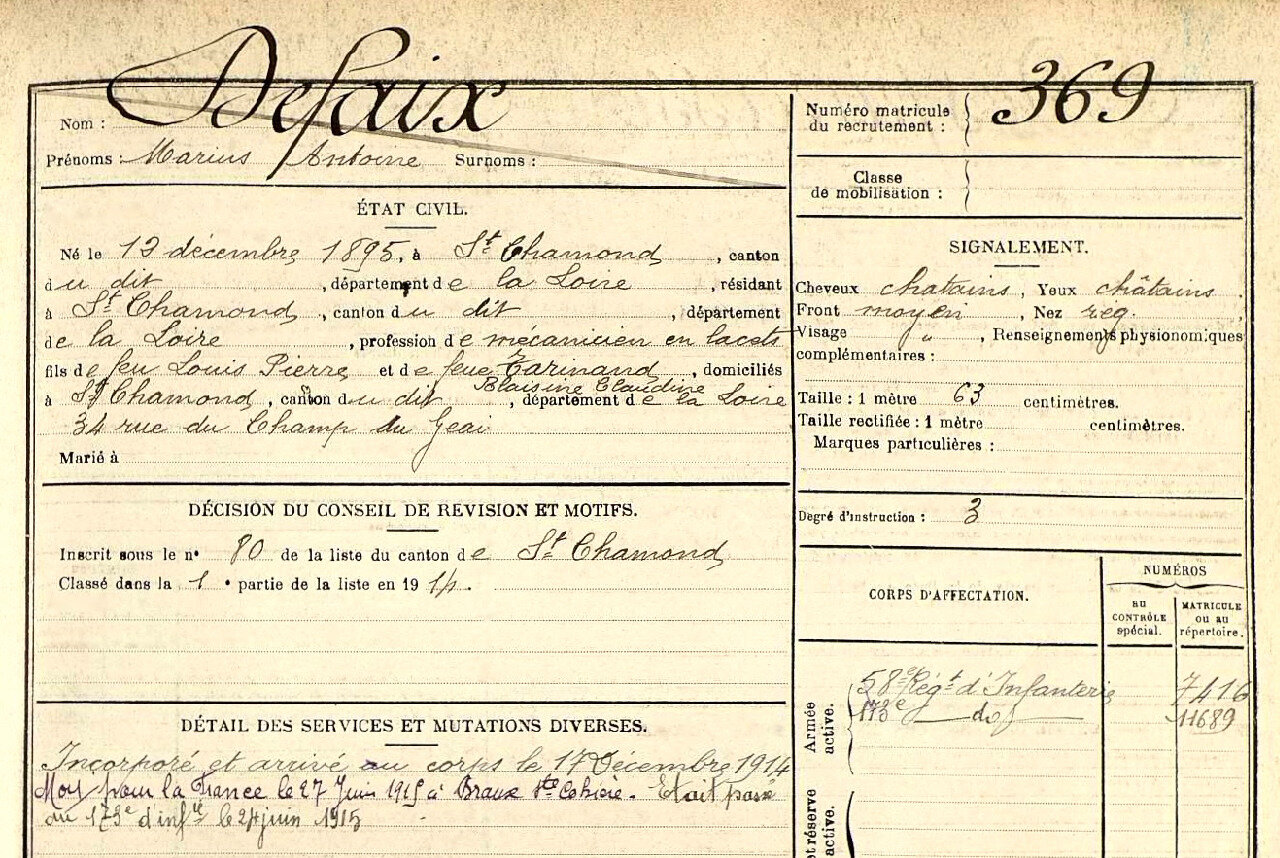 Nom : Desaix
Prénoms : Marius Antoine Surnoms :
ÉTAT CIVIL.
Né le 12 décembre 1895, à St Chamond, canton
du dit, département de la Loire, résidant
à St Chamond, canton du dit, département
de la Loire, profession de mécanicien en lacets
fils de feu Louis Pierre et de feue Tarinand, domiciliés
Blaisine Claudine
à St Chamond, canton du dit, département de la Loire
34 rue du Champ du Geai
Marié à
DÉCISION DU CONSEIL DE REVISION ET MOTIFS.
Inscrit sous le n° 80 de la liste du canton de St Chamond
Classé dans la 1e partie de la liste en 1914.
DÉTAIL DES SERVICES ET MUTATIONS DIVERSES.
Incorporé et arrivé au corps le 17 Décembre 1914
Mort pour la France le 27 Juin 1915 à Braux Ste Cohière. Etait passé
au 173e d'infie le 24 juin 1915
Numéro matricule
du recrutement : 369
Classe
de mobilisation :
SIGNALEMENT.
Cheveux chatains, Yeux châtains.
Front moyen, Nez reg.
Visage ", Renseignements physionomiques
complémentaires :
Taille : 1 mètre 63 centimètres.
Taille rectifiée : 1 mètre centimètres.
Marques particulières :
Degré d'instruction : 3
CORPS D'AFFECTATION.
NUMÉROS
au
CONTRÔLE
spécial.
MATRICULE
ou au
répertoire.
Armée
active.
58e Régt d'Infanterie 7416
173e do 11689
et réserve
active.